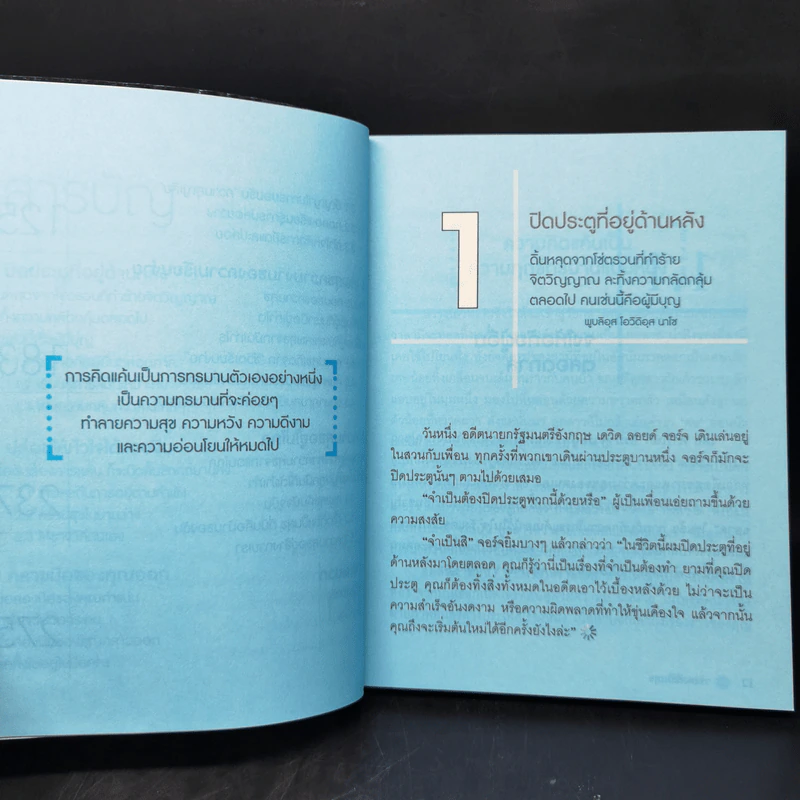 การคิดแค้นเป็นการทรมานตัวเองอย่างหนึ่ง
เป็นความทรมานที่จะค่อยๆ
ทำลายความสุข ความหวัง ความดีงาม
และความอ่อนโยนให้หมดไป
1
ปิดประตูที่อยู่ด้านหลัง
ดิ้นหลุดจากโซ่ตรวนที่ทำร้าย
จิตวิญญาณ ละทิ้งความกลัดกลุ้ม
ตลอดไป คนเช่นนี้คือผู้มีบุญ
พูบลิอุส โอวิดิอุส นาโซ
วันหนึ่ง อดีตนายกรัฐมนตรีอังกฤษ เดวิด ลอยด์ จอร์จ เดินเล่นอยู่
ในสวนกับเพื่อน ทุกครั้งที่พวกเขาเดินผ่านประตูบานหนึ่ง จอร์จก็มักจะ
ปิดประตูนั้นๆ ตามไปด้วยเสมอ
“จำเป็นต้องปิดประตูพวกนี้ด้วยหรือ” ผู้เป็นเพื่อนเอ่ยถามขึ้นด้วย
ความสงสัย
“จำเป็นสิ” จอร์จยิ้มบางๆ แล้วกล่าวว่า “ในชีวิตนี้ผมปิดประตูที่อยู่
ด้านหลังมาโดยตลอด คุณก็รู้ว่านี่เป็นเรื่องที่จำเป็นต้องทำ ยามที่คุณปิด
ประตู คุณก็ต้องทิ้งสิ่งทั้งหมดในอดีตเอาไว้เบื้องหลังด้วย ไม่ว่าจะเป็น
ความสำเร็จอันงดงาม หรือความผิดพลาดที่ทำให้ขุ่นเคืองใจ แล้วจากนั้น
คุณถึงจะเริ่มต้นใหม่ได้อีกครั้งยังไงล่ะ”